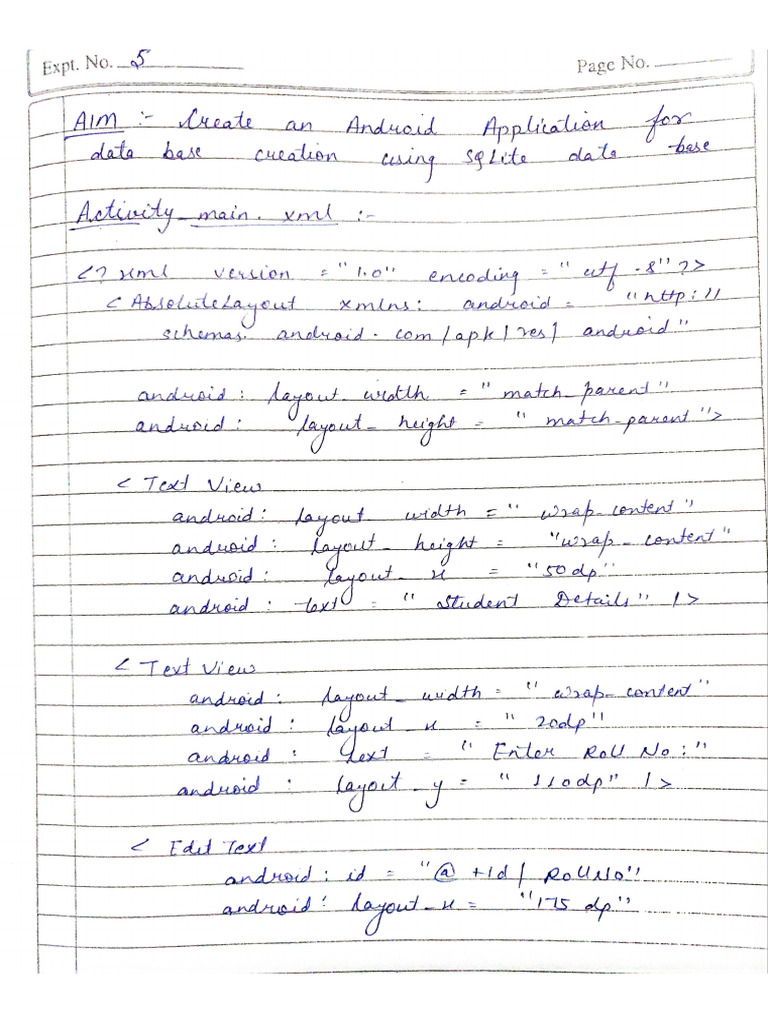 Expt. No. 5
Page No.
AIM :- Create an Android Application for
data base creation using SQLite data base
Activity_main.xml :-
<? xml version = "1.0" encoding = "utf-8" ?>
< AbsoluteLayout xmlns: android = "http://
schemas. android. com/apk/res/ android"
android: layout_width = "match_parent"
android: layout_height = "match_parent">
< Text View
android: layout width = "wrap_content"
android: layout_height = "wrap_content"
android: layout_x = "50dp"
android: text = "Student Details" />
< Text View
android: layout_width = "wrap_content"
android: layout_x = "20dp"
android: text = "Enter Roll No:"
android: layout_y = "110dp" />
< Edit Text
android: id = "@+id/ RollNo"
android: layout_x = "175 dp"